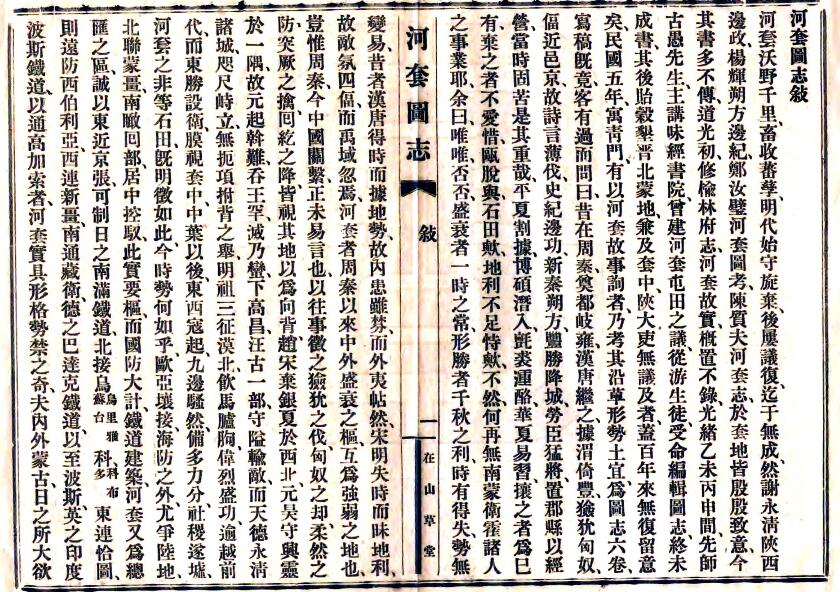 河套圖志敘
河套沃野千里、畜收蕃孳、明代始守旋棄、後屢議復、迄于無成、然謝永清陝西
邊政、楊輝朔方邊紀、鄭汝璧河套圖考、陳質夫河套志、於套地皆殷殷致意、今
其書多不傳、道光初修楡林府志、河套故實、概置不錄、光緒乙未丙申間、先師
古愚先生、主講味經書院、曾建河套屯田之議、從游生徒、受命編輯圖志、終未
成書、其後貽穀墾晋北蒙地、兼及套中、陝大吏無議及者、蓋百年來無復留意
矣、民國五年、寓靑門、有以河套故事詢者、乃考其沿革形勢土宜、爲圖志六卷、
寫稿旣竟、客有過而問曰、昔在周秦、奠都岐雍、漢唐繼之、據渭倚豐、獫狁匈奴、
偪近邑京、故詩言薄伐、史紀邊功、新秦朔方、豐勝降城、勞臣猛將、置郡縣以經
營、當時固苦是其重哉、平夏割據、博碩潛入、氈裘湩酪、華夏易習、攘之者爲巳
有、棄之者不愛惜、甌脫與、石田歟、地利不足恃歟、不然何再無南蒙衛霍諸人
之事業耶、余曰唯唯否否、盛衰者一時之常、形勝者千秋之利、時有得失、勢無
河套圖志
敘
一
在山草堂
變易、昔者漢唐得時而據地勢、故內患雖棼、而外夷帖然、宋明失時而昧地利、
故敵氛四偪、而禹域忽焉、河套者、周秦以來、中外盛衰之樞、互爲強弱之地也、
豈惟周秦、今中國關繫、正未易言也、以往事徵之、獫狁之伐、匈奴之却、柔然之
防、突厥之擒、回紇之降、皆視其地以爲向背、趙宋棄銀夏於西北、元吳守興靈
於一隅、故元起斡難、呑王罕、滅乃蠻、下高昌、汪古一部、守隘輸敵、而天德永淸
諸城、咫尺峙立、無扼項拊背之舉、明祖三征漠北、飮馬臚朐、偉烈盛功、逾越前
代、而東勝設衛、膜視套中、中葉以後、東西寇起、九邊騷然、備多力分、社稷遂墟、
河套之非等石田、旣明徵如此、今時勢何如乎、歐亞壤接、海防之外、尤爭陸地、
北聯蒙疆、南瞰回部、居中控馭、此實要樞、而國防大計、鐵道建築、河套又爲總
匯之區、誠以東近京張、可制日之南滿鐵道、北接烏烏里雅蘇台科科布多東連恰圖、
則遠防西伯利亞、西連新疆、南通藏衛、德之巴達克鐵道、以至波斯、英之印度
波斯鐵道、以通高加索者、河套實具形格勢禁之奇、夫內外蒙古、日之所大欲